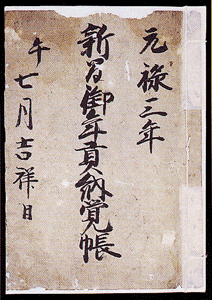 元禄三年
新 御年貢納覚帳
午七月吉祥日